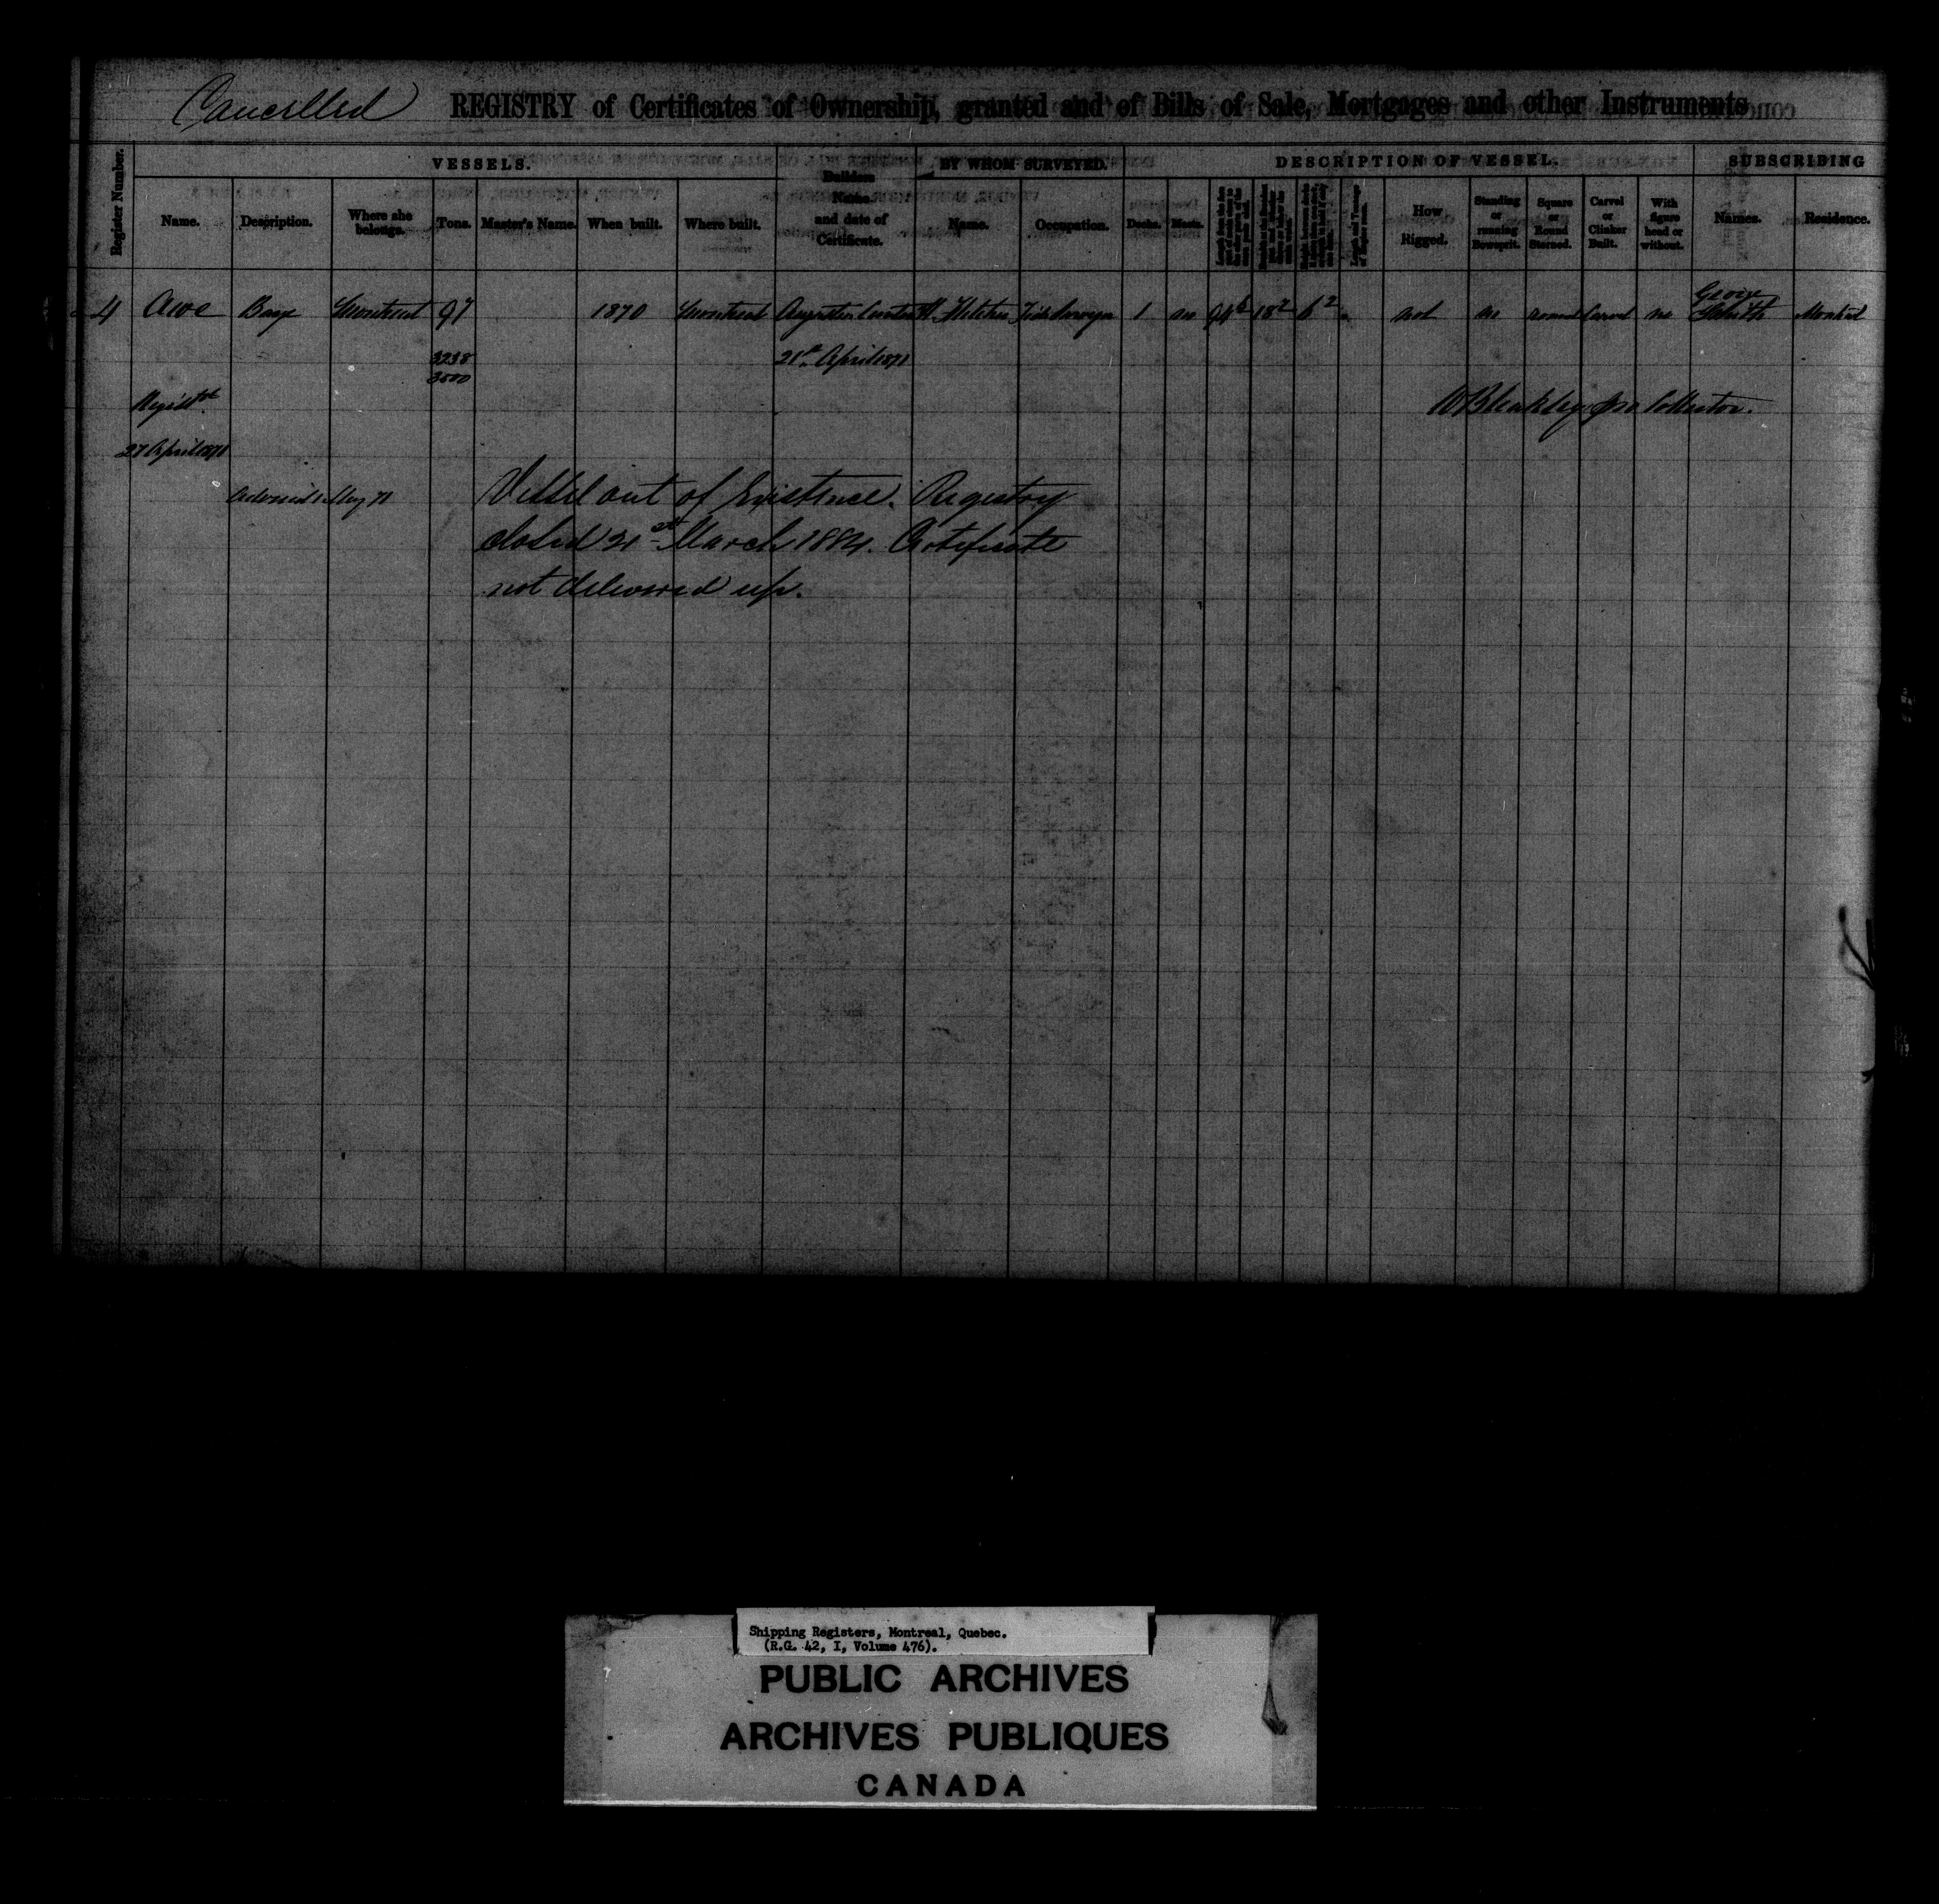 Cancelled REGISTRY of Certificates of Ownership, granted and of Bills of Sale, Mortgages and other Instruments
Register Number. VESSELS. Builders Name and date of Certificate. BY WHOM SURVEYED. DESCRIPTION OF VESSEL. SUBSCRIBING
Name. Description. Where she belongs. Tons. Master's Name. When built. Where built. Name. Occupation. Decks. Masts. How Rigged. Standing or running Bowsprit. Square or Round Sterned. Carvel or Clinker Built. With figure head or without. Names. Residence.
4 Awe Barge Montreal 97 1870 Montreal Augustin H. Fletcher Tide Surveyor 1 no 18 2 6 2 not no round Carvel no George Smith Montreal
3238
3500
21st April 1871
Registd
27 April 1871
W Bleakley pro Collector.
Delivered 1 May 71
Vessel out of Existence. Registry
closed 21st March 1884. Certificate
not delivered up.
Shipping Registers, Montreal, Quebec.
(R.G. 42, I, Volume 476).
PUBLIC ARCHIVES
ARCHIVES PUBLIQUES
CANADA